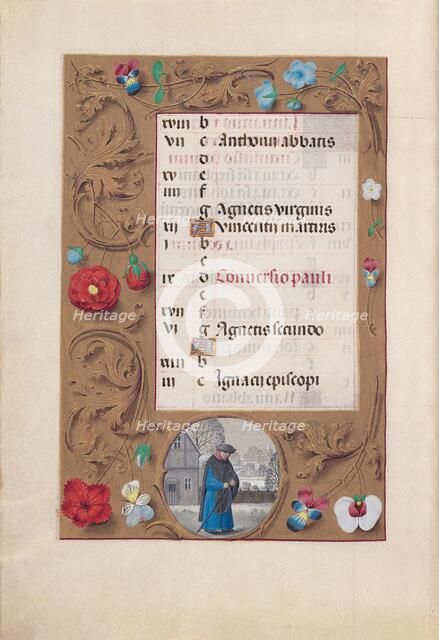 xviii b
vii c Anthonii abbatis
d
xv e
iiii f
g Agnetis virginis
xii A Vincentii martiris
i b
c
ix d Conversio pauli
e
xvii f
vi g Agnetis secundo
A
xiiii b
iii c Ignacii episcopi
Heritage
Heritage
Heritage
Heritage
Heritage
Heritage